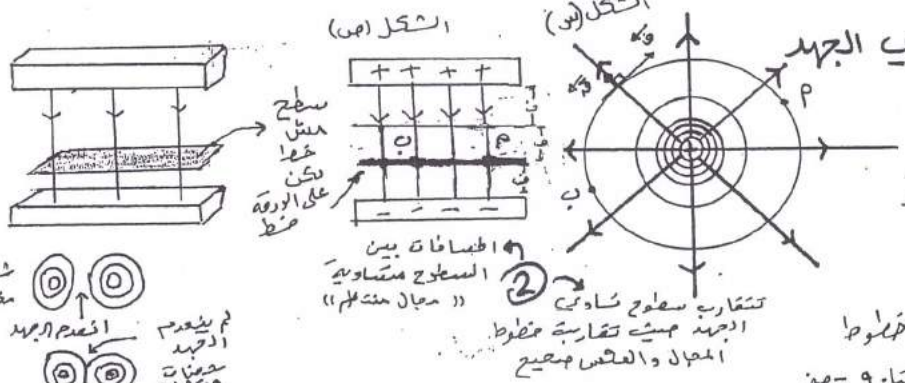 الشكل (س)
الشكل (ص)
الجهد
م
ب
+ + + +
ب
م
- - - -
سطح
مش
خط
لكن
على الورقة
خط
المسافات بين
السطوح متساوية
(( مجال منتظم ))
2
تتقارب سطوح تساوي
الجهد حيث تتقارب خطوط
المجال والعكس صحيح
خطوط
انعدم الجهد
لم ينعدم
الجهد
شحنات